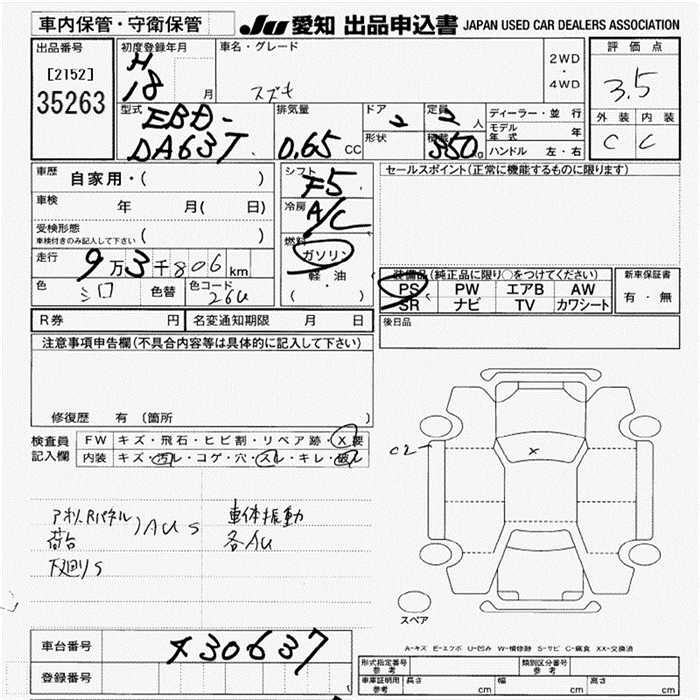 車内保管・守衛保管
JU 愛知 出品申込書 JAPAN USED CAR DEALERS ASSOCIATION
出品番号
[2152]
35263
初度登録年月
H
18 月
車名・グレード
スズキ
2WD
・
4WD
評価点
3.5
外装 内装
C C
型式
EBD-
DA63T
排気量
0.65 CC
ドア
2
形状
定員
2 人
積載
350
ディーラー・並 行
モデル
年 式 年
ハンドル 左・右
車歴 自家用・( )
車検 年 月( 日)
受検形態
車検付きのみ記入して下さい ( )
走行 9万3千806km
色 シロ 色替 色コード 26U
シフト
F5
冷房
A/C
燃料
ガソリン
軽・油
( ・ )
セールスポイント(正常に機能するものに限ります)
装備品(純正品に限り○をつけてください)
PS PW エアB AW
SR ナビ TV カワシート
新車保証書
有・無
後日品
R券 円 名変通知期限 月 日
注意事項申告欄(不具合内容等は具体的に記入して下さい)
修復歴 有 (箇所 )
検査員
記入欄
FW キズ・飛石・ヒビ割・リペア跡・X要
内装 キズ・汚レ・コゲ・穴・スレ・キレ・破レ
C2
×
荷台
)AU S
下廻りS
車体振動
各AU
スペア
A-キズ E-エクボ U-凹み W-補修跡 S-サビ C-腐食 XX-交換済
車台番号
登録番号
形式指定番号
参 考
類別区分番号
参 考
車庫証明用
参考
長さ cm 幅 cm 高さ cm